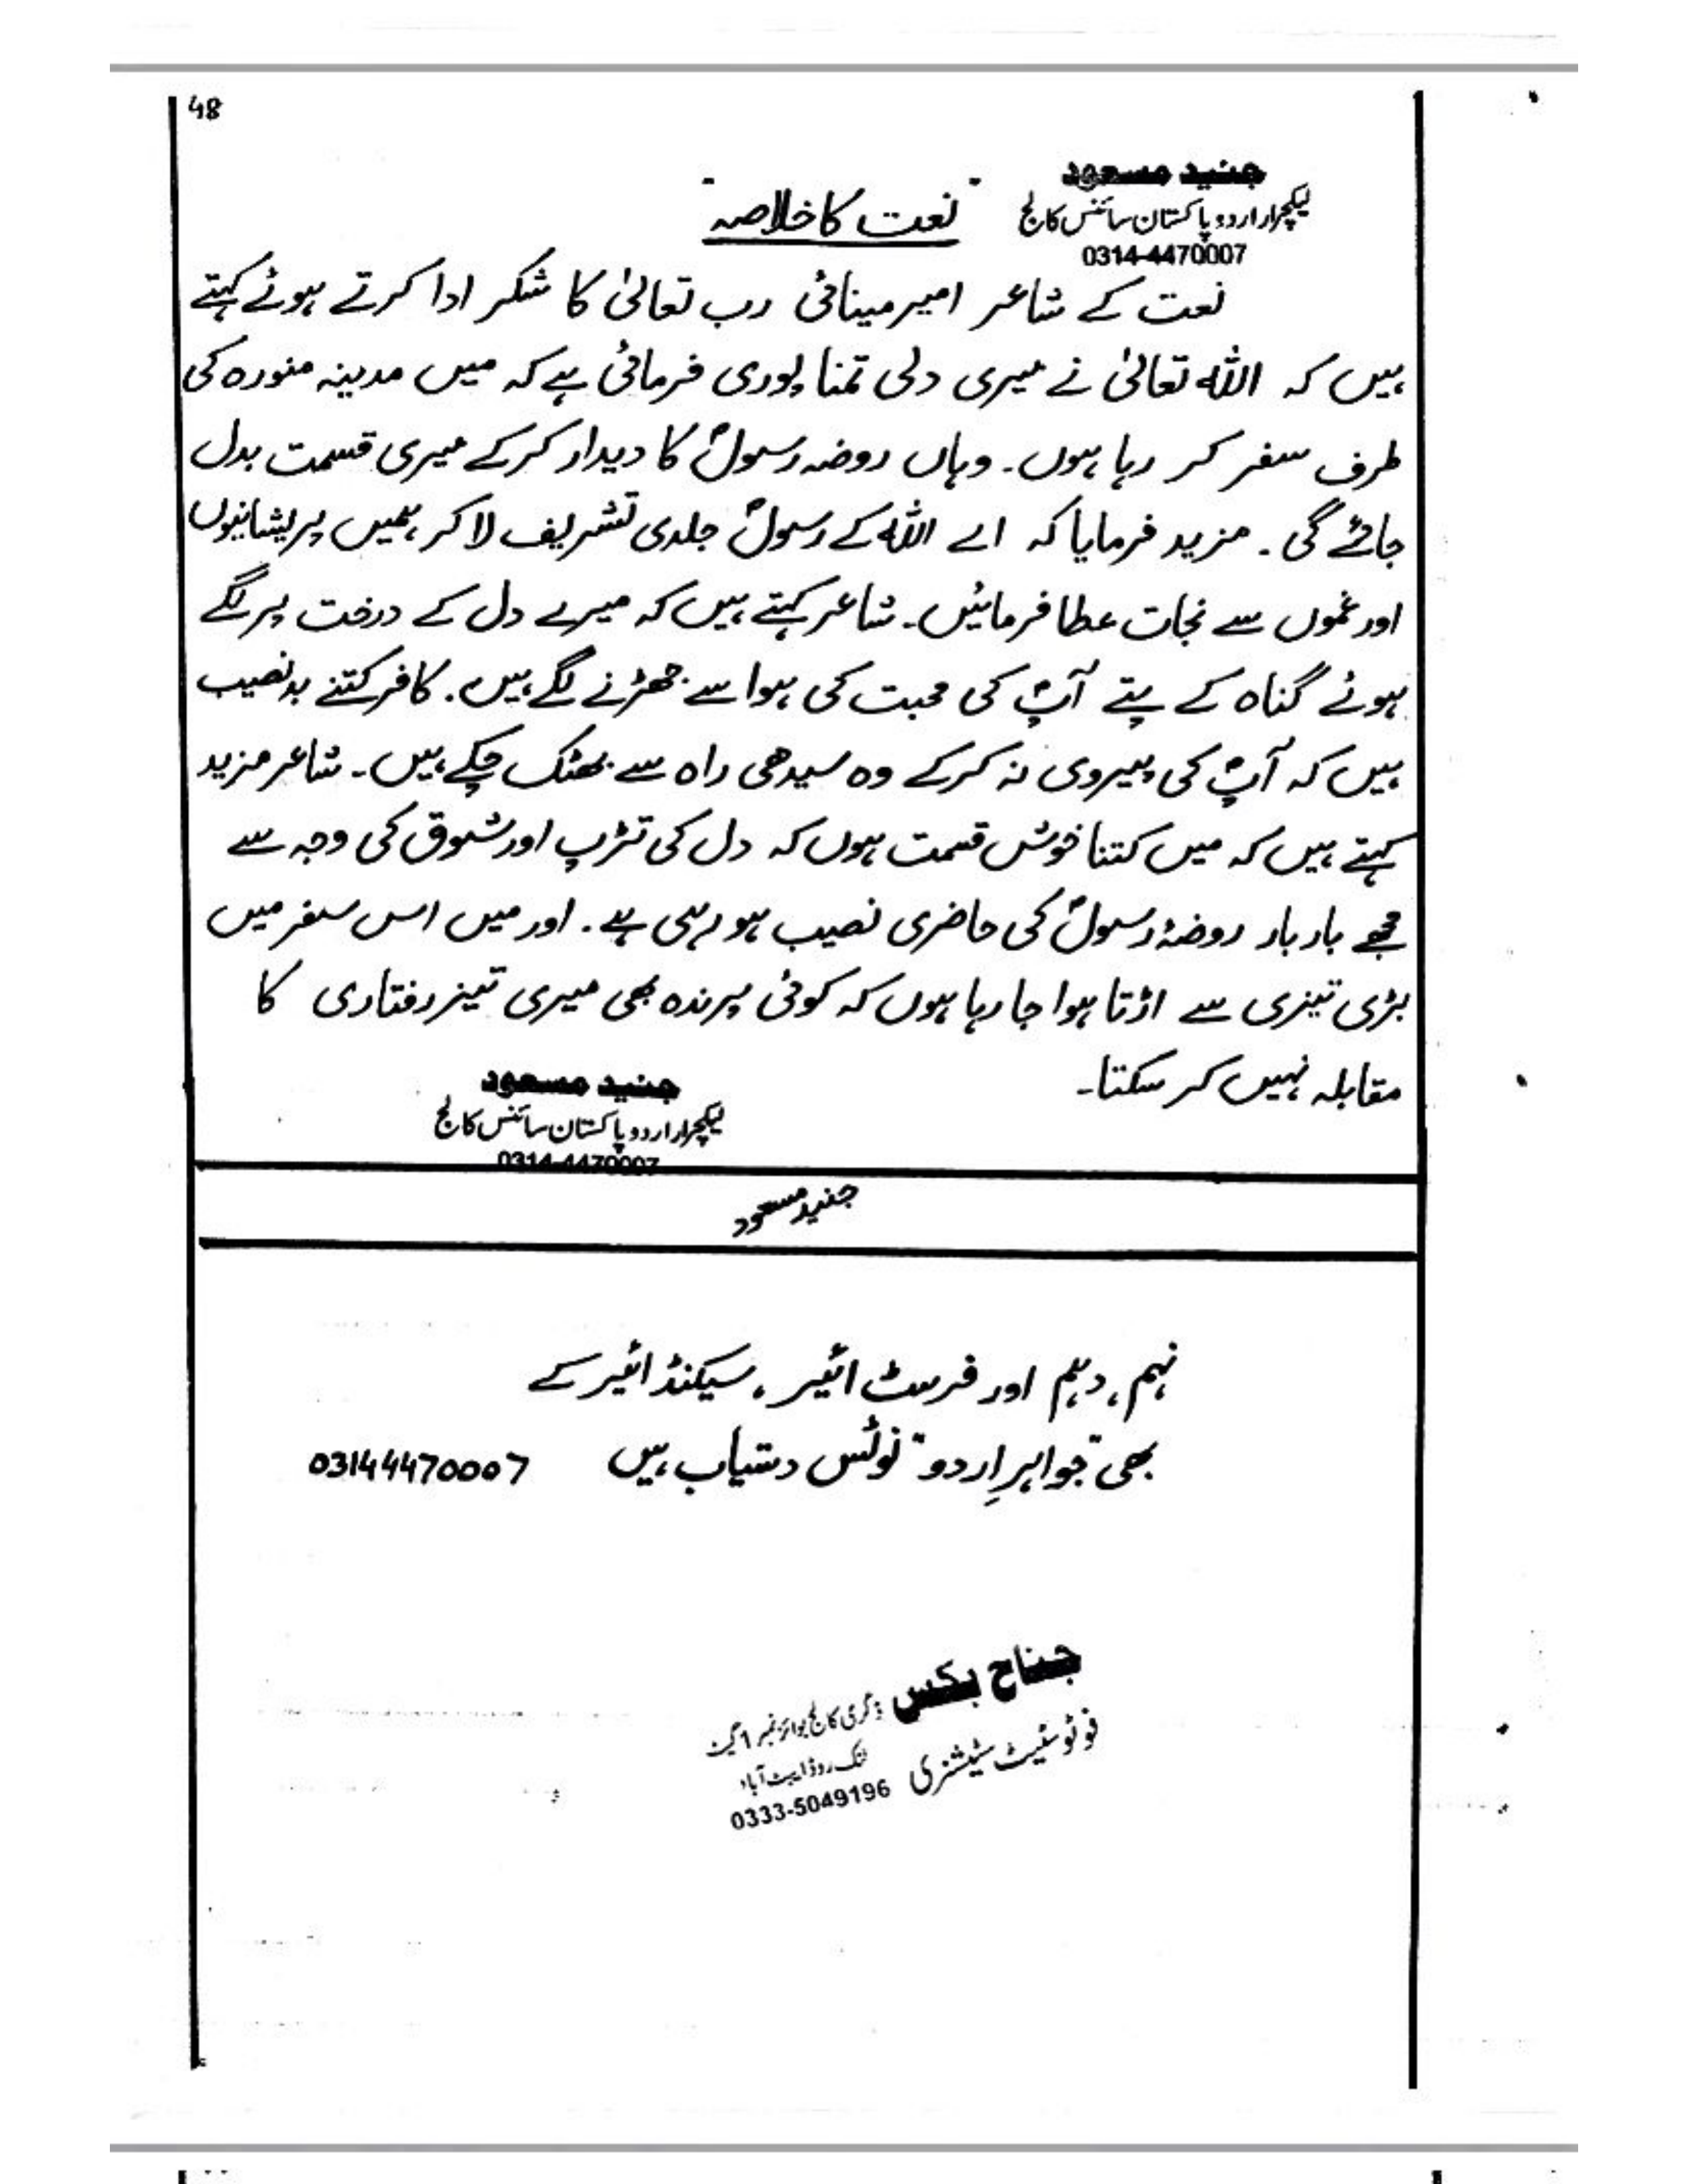 48
جنید مسعود
لیکچرار اردو پاکستان سائنس کالج
0314-4470007
"نعت کا خلاصہ"
نعت کے شاعر امیر مینائی رب تعالیٰ کا شکر ادا کرتے ہوئے کہتے
ہیں کہ اللہ تعالیٰ نے میری دلی تمنا پوری فرمائی ہے کہ میں مدینہ منورہ کی
طرف سفر کر رہا ہوں۔ وہاں روضہ رسولؐ کا دیدار کرکے میری قسمت بدل
جائے گی۔ مزید فرمایا کہ اے اللہ کے رسولؐ جلدی تشریف لا کر ہمیں پریشانیوں
اور غموں سے نجات عطا فرمائیں۔ شاعر کہتے ہیں کہ میرے دل کے درخت پر لگے
ہوئے گناہ کے پتے آپؐ کی محبت کی ہوا سے جھڑنے لگے ہیں۔ کافر کتنے بدنصیب
ہیں کہ آپؐ کی پیروی نہ کرکے وہ سیدھی راہ سے بھٹک چکے ہیں۔ شاعر مزید
کہتے ہیں کہ میں کتنا خوش قسمت ہوں کہ دل کی تڑپ اور شوق کی وجہ سے
مجھے بار بار روضۂ رسولؐ کی حاضری نصیب ہو رہی ہے۔ اور میں اس سفر میں
بڑی تیزی سے اڑتا ہوا جا رہا ہوں کہ کوئی پرندہ بھی میری تیز رفتاری کا
مقابلہ نہیں کر سکتا۔
جنید مسعود
لیکچرار اردو پاکستان سائنس کالج
0314-4470007
جنید مسعود
نہم، دہم اور فرسٹ ائیر، سیکنڈ ائیر کے
بھی "جواہرِ اردو" نوٹس دستیاب ہیں 03144470007
جناح بکس ڈگری کالج بوائز نمبر 1 گیٹ
فوٹوسٹیٹ سٹیشنری لنک روڈ ایبٹ آباد
0333-5049196